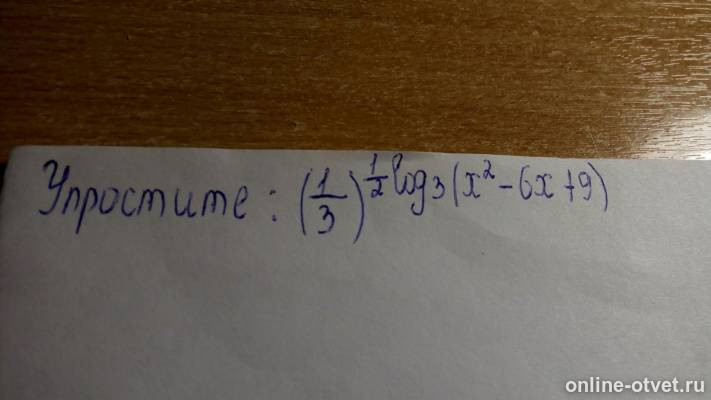 Упростите: (1/3)^(1/2 log₃(x² - 6x + 9))
online-otvet.ru